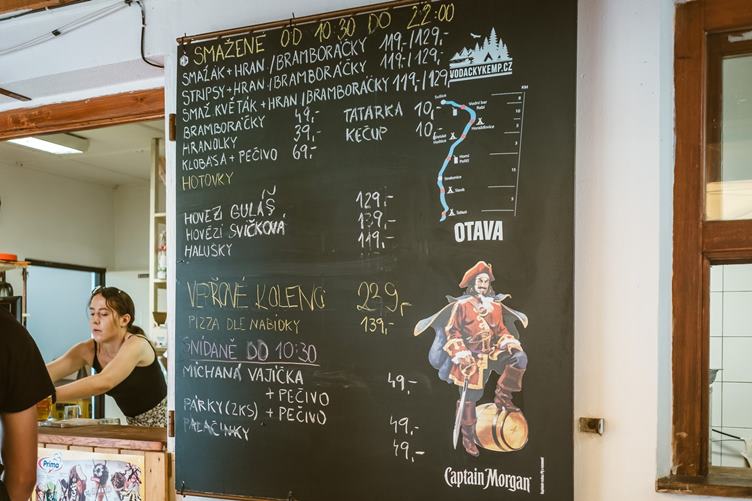 SMAŽENÉ OD 10:30 DO 22:00
SMAŽÁK + HRAN / BRAMBORÁČKY 119,-/129,-
STRIPSY + HRAN / BRAMBORÁČKY 119,-/129,-
SMAŽ KVĚTÁK + HRAN / BRAMBORÁČKY 119,-/129
BRAMBORÁČKY 49,-
HRANOLKY 39,-
KLOBÁSA + PEČIVO 69,-
TATARKA 10,-
KEČUP 10,-
HOTOVKY
HOVĚZÍ GULÁŠ 129,-
HOVĚZÍ SVÍČKOVÁ 139,-
HALUŠKY 119,-
VEPŘOVÉ KOLENO 239,-
PIZZA DLE NABÍDKY 139,-
SNÍDANĚ DO 10:30
MÍCHANÁ VAJÍČKA + PEČIVO 49,-
PÁRKY (2KS) + PEČIVO 49,-
PALAČINKY 49,-
VODACKYKEMP.CZ
KM
OTAVA
Captain Morgan
Prima